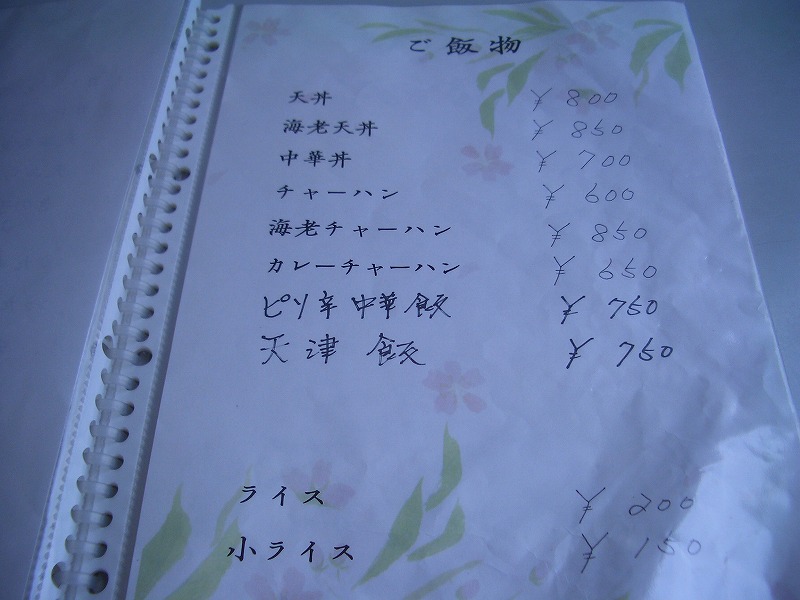 ご飯物
天丼 ¥ 800
海老天丼 ¥ 850
中華丼 ¥ 700
チャーハン ¥ 600
海老チャーハン ¥ 850
カレーチャーハン ¥ 650
ピリ辛中華飯 ¥ 750
天津飯 ¥ 750
ライス ¥ 200
小ライス ¥ 150